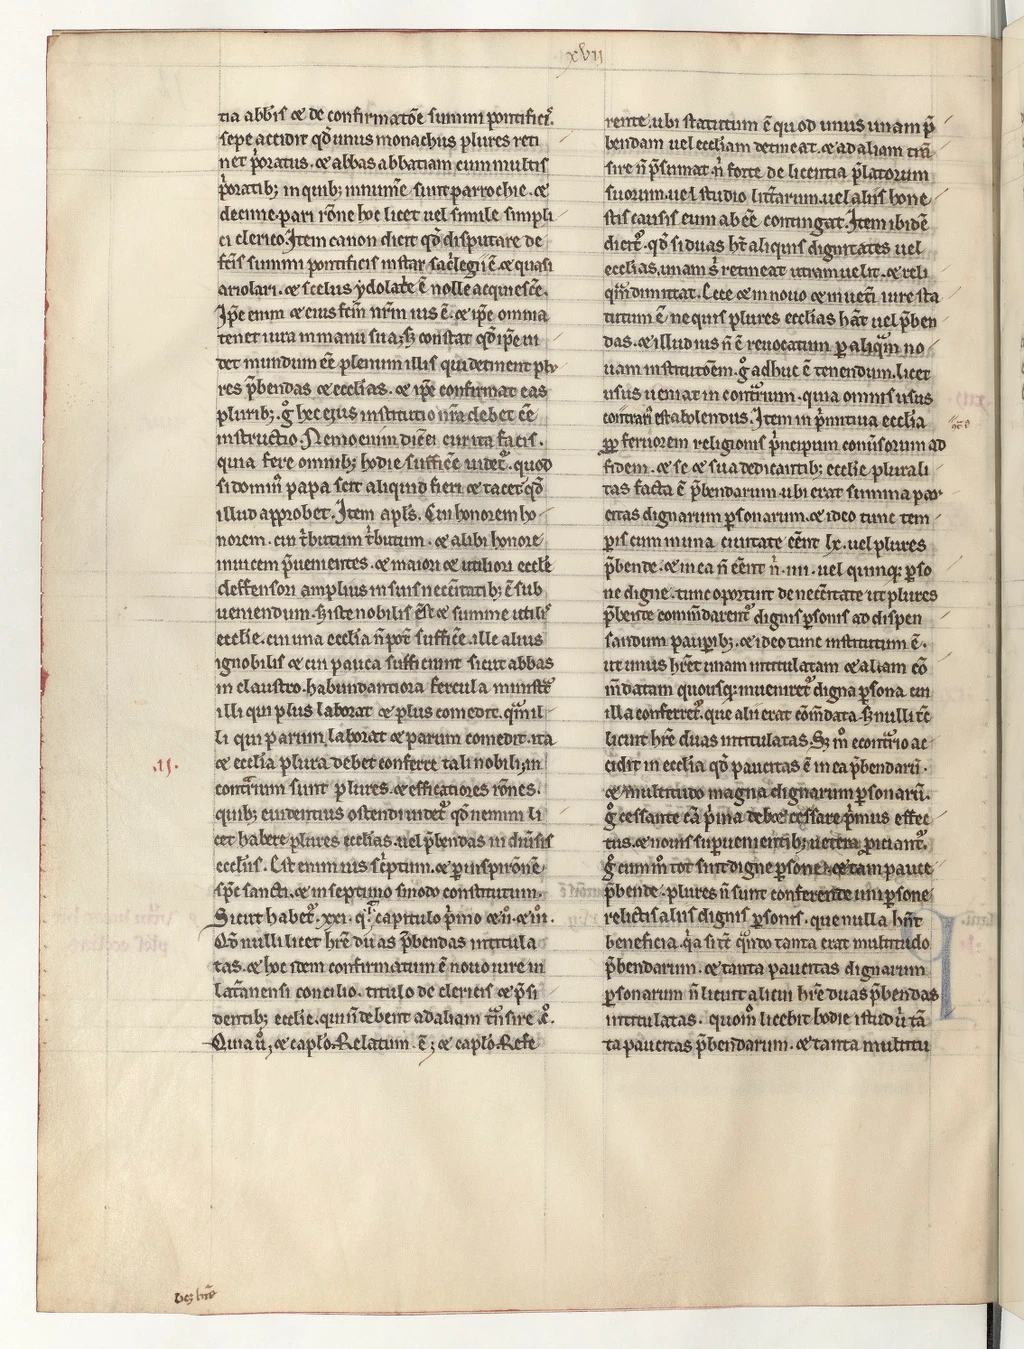 xvij
tia abbis & de confirmatōe summi pontificis.
sepe accidit qd unus monachus plures reti
net p̄oratus. & abbas abbatiam cum multis
p̄oratibȝ in quibȝ innumē sunt parrochie. &
decime. pari rōne hoc licet uel simile simpli
ci clerico. Item canon dicit qd disputare de
fc̄is summi pontificis instar sac̄legii ē. & quasi
ariolari. & scelus ydolat̄e ē nolle acquiesc̄e.
Ip̄e enim & eius fc̄m nr̄m ius ē. & ip̄e omnia
tenet iura in manu sua. sȝ constat qd ip̄e ui
det mundum eē plenum illis qui detinent plu
res p̄bendas & ecclias. & ip̄e confirmat eas
pluribȝ. g̊ hec eius institutio nr̄a debet eē
instructio. Nemo enim dic̄ ei cur ita facis.
quia fere omnibȝ hodie suffic̄e uidet᷑. quod
si domin᷒ papa scit aliquid fieri & tacet qd
illud approbet. Item apl̄s. Cui honorem ho
norem. cui t̄butum t̄butum. & alibi honore
inuicem p̄uenientes. & maiori & utiliori eccl̄e
deffensori amplius in suis nec̄itatibȝ ē sub
ueniendum. sȝ iste nobilis ē & summe utilis
ecclie. cui una ecclia n̄ pot̄ suffic̄e. ille alius
ignobilis & cui pauca sufficiunt sicut abbas
in claustro. habundantiora fercula ministrat
illi qui plus laborat & plus comedit. qm̄ il
li qui parum laborat & parum comedit. ita
& ecclia plura debet conferre tali nobili. in
.ij.
contrium sunt plures. & efficatiores rōnes.
quibȝ euidentius ostendi uidet᷑ qd nemini li
cet habere plures ecclias. uel p̄bendas in diūsis
eccliis. Est enim ius sc̄ptum. & p inspirōne
sp̄e sancti. & in septimo sinodo constitutum.
Sicut habet᷑. xxi. q. i. capitulo p̄mo & .ii. & .iii.
Qd nulli licet hr̄e duas p̄bendas intitula
tas. & hoc idem confirmatum ē nouo iure in
lat̄anensi concilio. titulo de clericis & p̄si
dentibȝ ecclie. qui n̄ debent ad aliam tn̄sire &c̄.
Quia ū. & caplo. Relatum. ē. & caplo. Refe
rente. ubi statutum ē quod unus unam p̄
bendam uel eccliam detineat. & ad aliam trā
sire n̄ p̄sumat. n̄ forte de licentia p̄latorum
suorum. uel studio litt̄arum. uel aliis hone
stis causis eum abeē contingat. Item ibidē
dicit᷑. qd si duas ht̄ aliquis dignitates uel
ecclias. unam s. retineat utram uelit. & reli
quam dimittat. Ecce & in nouo & in ueti iure sta
tutum ē ne quis plures ecclias hāt uel p̄ben
das. & illud ius n̄ ē reuocatum p aliquam no
uam institutōem. g̊ adhuc ē tenendum. licet
usus ueniat in contrium. quia omnis usus
contrari᷒ est abolendus. Item in p̄mitiua ecclia
pp feruorem religionis p̄ncipum conūsorum ad
fidem. & se & sua dedicantibȝ ecclie plurali
tas facta ē p̄bendarum. ubi erat summa pau
citas dignarum psonarum. & ideo tunc tem
pis cum in una ciuitate eēnt lx. uel plures
p̄bende. & in ea n̄ eēnt n̄. iiii. uel quinqȝ pso
ne digne. tunc oportuit de nec̄itate ut plures
p̄bende comm̄darent᷑ dignis psonis ad dispen
sandum paupibȝ. & ideo tunc institutum ē.
ut unus hr̄et unam intitulatam & aliam cō
m̄datam quousqȝ inueniret᷑ digna psona cui
illa conferret᷑. que alii erat cōm̄data. sȝ nulli tc̄
licuit hr̄e duas intitulatas. Sȝ m̊ econtrio ac
cidit in ecclia qd paucitas ē in ea p̄bendarū.
& multitudo magna dignarum psonarū.
g̊ cessante cā p̄ma debet cessare p̄mus effec
tus. & nouis supuenientibȝ uetera piciant᷑.
g̊ cum m̊ tot sint digne psone. & tam pauce
p̄bende. plures n̄ sunt conferende uni psone
relictis aliis dignis psonis. que nulla hn̄t
beneficia. q̄a si tc̄ quando tanta erat multitudo
p̄bendarum. & tanta paucitas dignarum
psonarum n̄ licuit alicui hr̄e duas p̄bendas
intitulatas. quom̊ licebit hodie istud ū tā
ta paucitas p̄bendarum. & tanta multitu